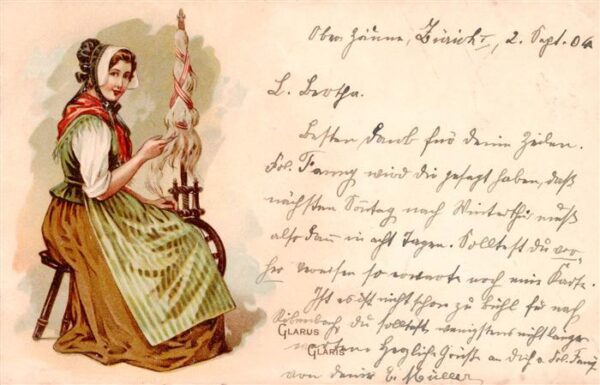 Ober Zäune, Zürich I, 2. Sept. 04
L. Bertha.
Besten Dank für deine Zeilen.
Frl. Fanny wird dir gesagt haben, daß
nächsten Sonntag nach Winterthur muß
also dann in acht Tagen. Solltest du vor-
her verreisen so erwarte noch eine Karte.
Ist es ist nicht schon zu kühl für nach
du solltest wenigstens nicht länger
GLARUS
warten. Herzliche Grüße an dich u. Frl. Fanny
GLARIS
von deiner E. Müller